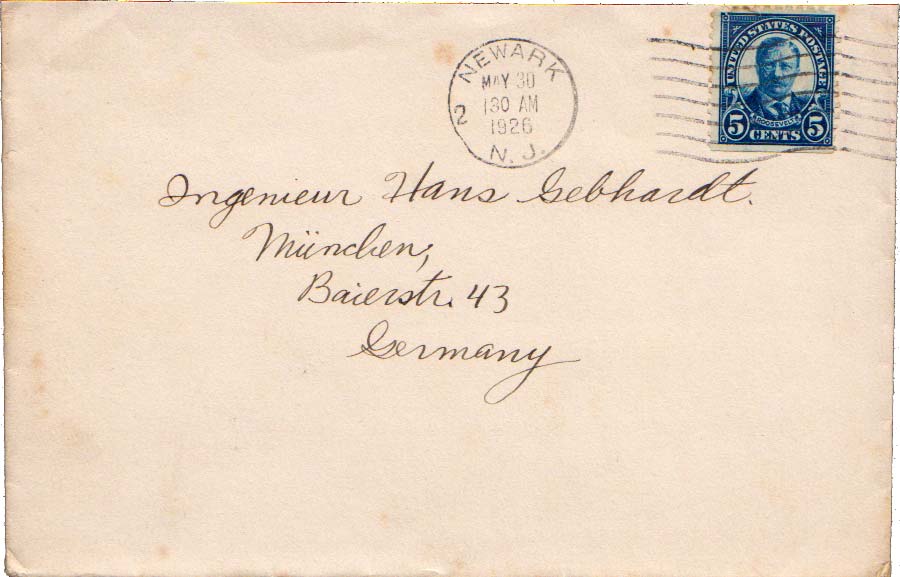 NEWARK
MAY 30
130 AM
1926
2
N. J.
UNITED STATES POSTAGE
ROOSEVELT
5 CENTS 5
Ingenieur Hans Gebhardt.
München,
Baierstr. 43
Germany